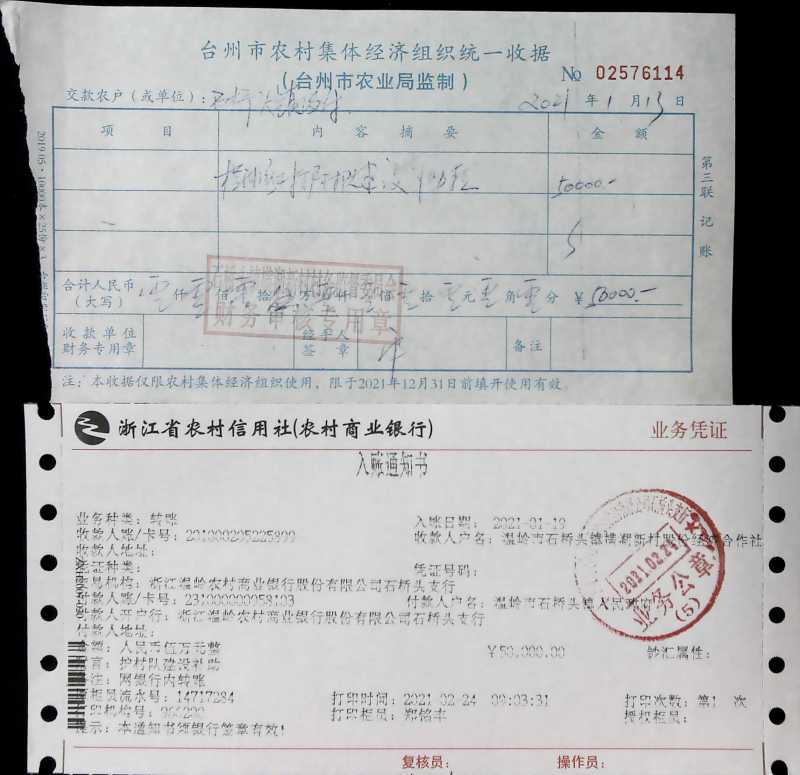 台州市农村集体经济组织统一收据
(台州市农业局监制)
№ 02576114
交款农户(或单位):
2021 年 1 月 13 日
项 目 内 容 摘 要 金 额
50000.-
合计人民币
(大写)
零 仟 零 佰 零 拾 万 仟 佰 零 拾 零 元 零 角 零 分 ¥ 50000.-
财务审核专用章
收款单位
财务专用章
经手人
签 章
备注
第三联 记账
注:本收据仅限农村集体经济组织使用,限于2021年12月31日前填开使用有效。
浙江省农村信用社(农村商业银行)
业务凭证
入账通知书
业务种类: 转账
入账日期: 2021-01-19
收款人账/卡号:
收款人户名: 温岭市石桥头镇横湖新村股份经济合作社
收款人地址:
凭证种类:
凭证号码:
交易机构: 浙江温岭农村商业银行股份有限公司石桥头支行
付款人账/卡号:
付款人户名: 温岭市石桥头镇人民政府
付款人开户行: 浙江温岭农村商业银行股份有限公司石桥头支行
付款人地址:
金额: 人民币伍万元整
¥50,000.00
钞汇属性:
附言: 护村队建设补助
备注: 网银行内转账
柜员流水号: 14717284
打印时间: 2021-02-24 09:03:31
打印次数: 第1 次
打印机构号:
打印柜员:
授权柜员:
提示: 本通知书须银行签章有效!
2021.02.24
业务公章
(5)
复核员:
操作员: